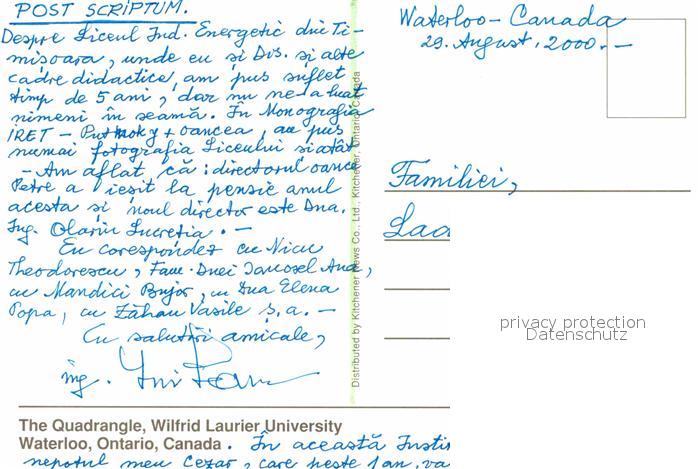 POST SCRIPTUM.
Despre Liceul Ind. Energetic din Ti-
misoara, unde eu și Dvs. și alte
cadre didactice, am pus suflet
timp de 5 ani, dar nu ne-a luat
nimeni în seamă. În Monografia
IRET - + Oancea, au pus
numai fotografia Liceului și atât
- Am aflat că: directorul Oancea
Petre a ieșit la pensie anul
acesta și noul director este Dna.
Ing. Olariu Lucreția. -
Eu corespondez cu Nicu
Theodorescu, Fam. Dnei Iancosel Ana,
cu Mandici Bujor, cu Dna Elena
Popa, cu Zăhan Vasile ș.a. -
Cu salutări amicale,
ing.
Distributed by Kitchener News Co., Ltd., Kitchener, Ontario, Canada
Waterloo - Canada
29. August, 2000. -
Familiei,
privacy protection
Datenschutz
The Quadrangle, Wilfrid Laurier University
Waterloo, Ontario, Canada. În această
nepotul meu Cezar, care peste 1 an, va